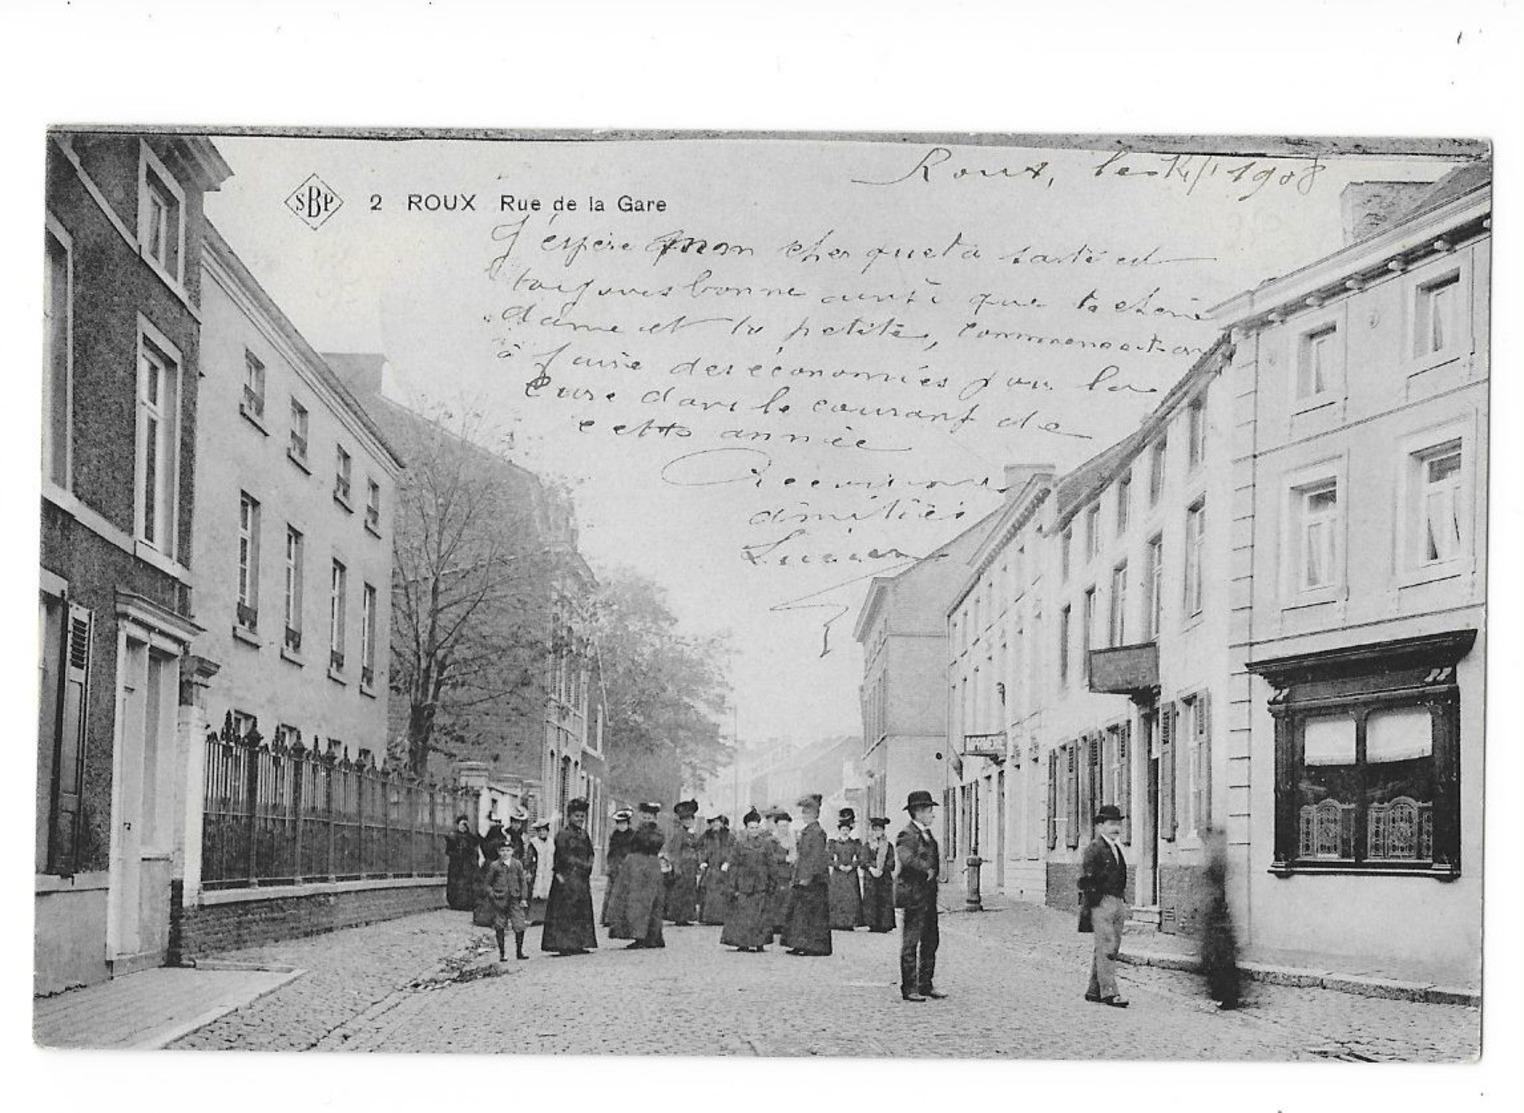 Roux, le 1908
SBP 2 ROUX Rue de la Gare
J'éspère mon cher que ta santé est
toujours bonne ainsi que ta chère
dame et la petite, commence t-on
à faire des économies pour la
dans le courant de
cette année
Recevez nos
amitiés
Lucien